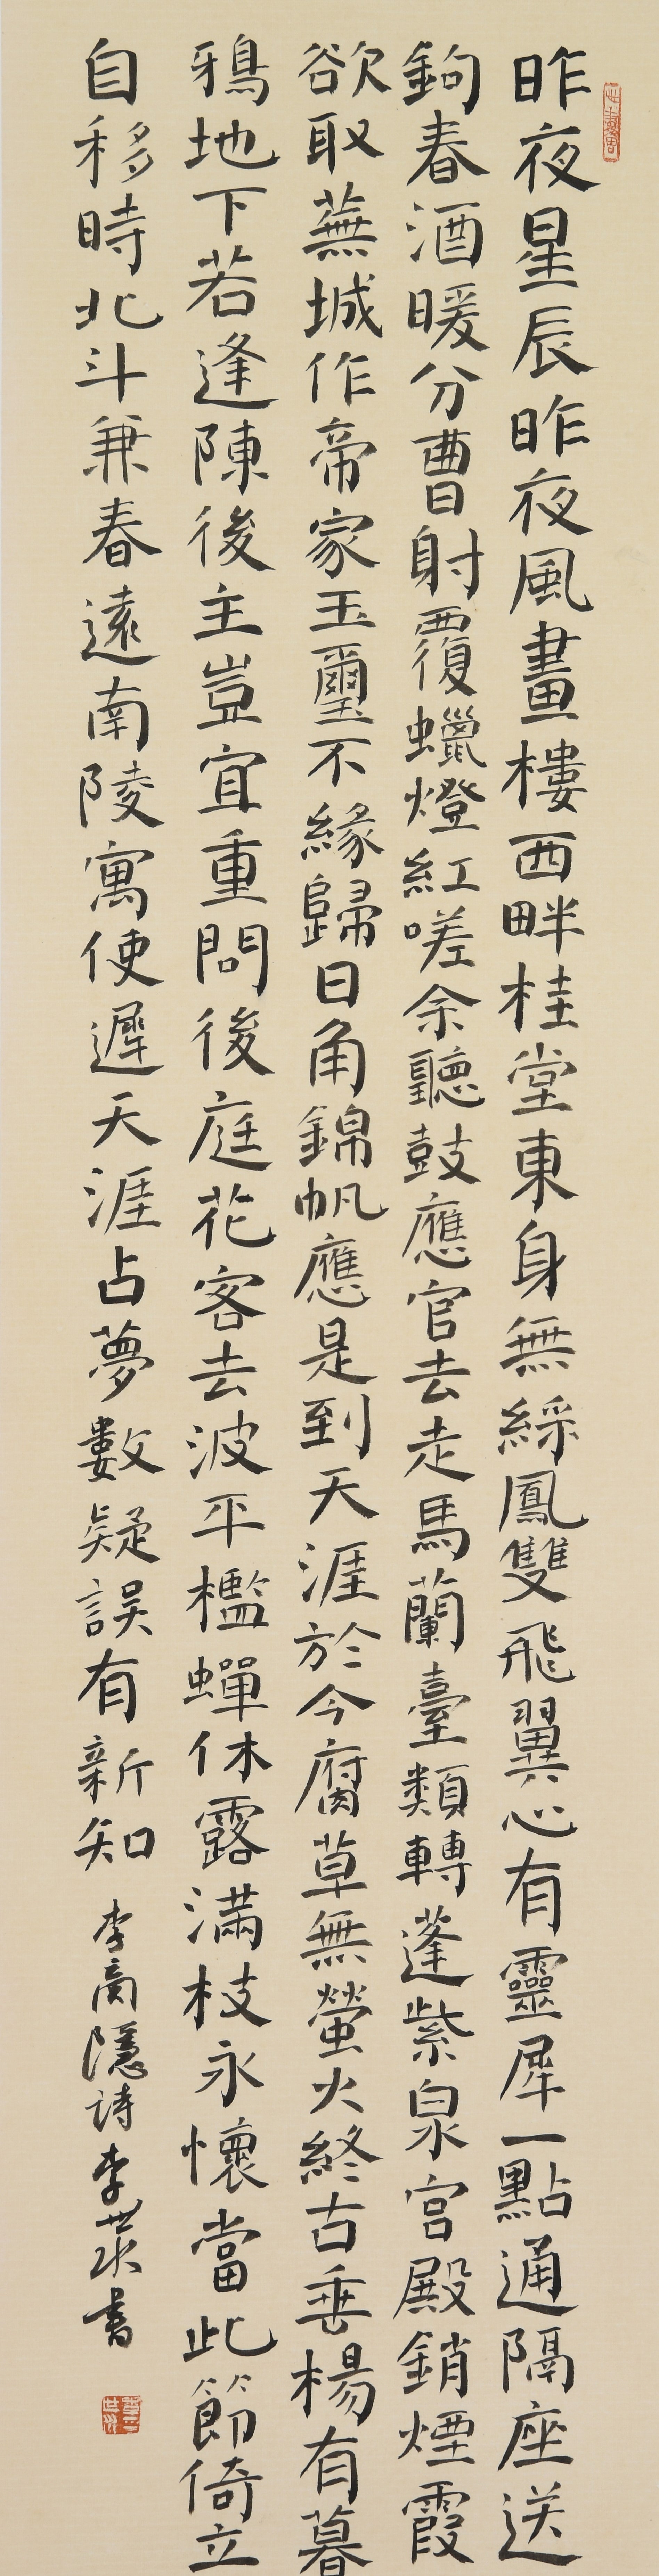 昨夜星辰昨夜風畫樓西畔桂堂東身無綵鳳雙飛翼心有靈犀一點通隔座送
鉤春酒暖分曹射覆蠟燈紅嗟余聽鼓應官去走馬蘭臺類轉蓬紫泉宮殿鎖煙霞
欲取蕪城作帝家玉璽不緣歸日角錦帆應是到天涯於今腐草無螢火終古垂楊有暮
鴉地下若逢陳後主豈宜重問後庭花客去波平檻蟬休露滿枝永懷當此節倚立
自移時北斗兼春遠南陵寓使遲天涯占夢數疑誤有新知
李商隱詩李世冰書